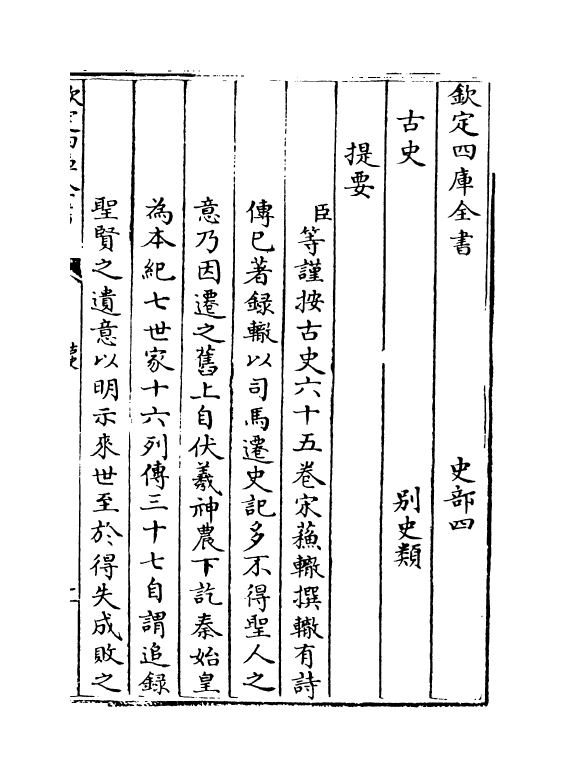 欽定四庫全書 史部四
古史 別史類
提要
臣等謹按古史六十五卷宋蘓轍撰轍有詩
傳已著録轍以司馬遷史記多不得聖人之
意乃因遷之舊上自伏羲神農下訖秦始皇
為本紀七世家十六列傳三十七自謂追録
聖賢之遺意以明示來世至於得失成敗之